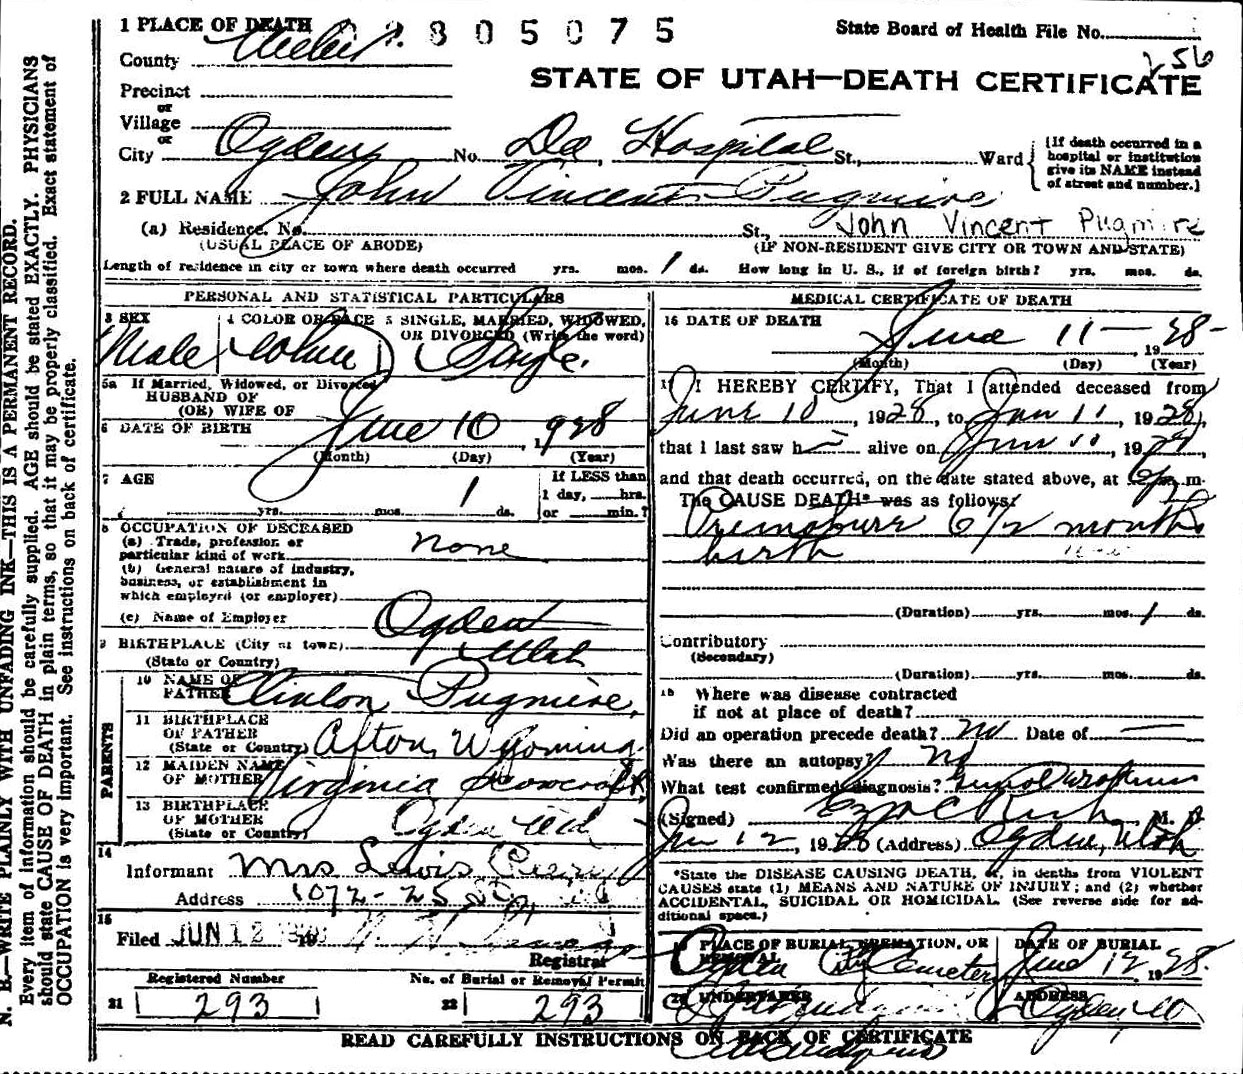 1 PLACE OF DEATH 2805075 State Board of Health File No.
County Weber 256
STATE OF UTAH—DEATH CERTIFICATE
Precinct
or
Village
or
City Ogden No. Dee Hospital St., Ward
[If death occurred in a hospital or institution give its NAME instead of street and number.]
2 FULL NAME John Vincent Pugmire
(a) Residence, No. St., John Vincent Pugmire
(USUAL PLACE OF ABODE) (IF NON-RESIDENT GIVE CITY OR TOWN AND STATE)
Length of residence in city or town where death occurred yrs. mos. 1 ds. How long in U. S., if of foreign birth? yrs. mos. ds.
PERSONAL AND STATISTICAL PARTICULARS
3 SEX 4 COLOR OR RACE 5 SINGLE, MARRIED, WIDOWED, OR DIVORCED (Write the word)
Male White Single
5a If Married, Widowed, or Divorced
HUSBAND OF
(OR) WIFE OF
6 DATE OF BIRTH June 10, 1928
(Month) (Day) (Year)
7 AGE If LESS than
1 1 day, hrs.
yrs. mos. ds. or min.?
8 OCCUPATION OF DECEASED
(a) Trade, profession or
particular kind of work none
(b) General nature of industry,
business, or establishment in
which employed (or employer)
(c) Name of Employer
9 BIRTHPLACE (City or town) Ogden
(State or Country) Utah
PARENTS
10 NAME OF FATHER Clinton Pugmire
11 BIRTHPLACE OF FATHER
(State or Country) Afton, Wyoming
12 MAIDEN NAME OF MOTHER Virginia
13 BIRTHPLACE OF MOTHER
(State or Country) Ogden Utah
14
Informant Mrs Lewis
Address 1072 - 25 St
15
Filed JUN 12 1928
Registrar
Registered Number No. of Burial or Removal Permit
21 293 22 293
MEDICAL CERTIFICATE OF DEATH
16 DATE OF DEATH
June 11 — 1928
(Month) (Day) (Year)
17 I HEREBY CERTIFY, That I attended deceased from
June 10, 1928, to Jun 11, 1928,
that I last saw h alive on Jun 11, 1928,
and that death occurred, on the date stated above, at m.
The CAUSE DEATH* was as follows:
Premature 6 1/2 months
birth
(Duration) yrs. mos. 1 ds.
Contributory
(Secondary)
(Duration) yrs. mos. ds.
18 Where was disease contracted
if not at place of death?
Did an operation precede death? No Date of —
Was there an autopsy? No
What test confirmed diagnosis?
(Signed) M. D.
Jun 12, 1928 (Address) Ogden, Utah
*State the DISEASE CAUSING DEATH, or, in deaths from VIOLENT
CAUSES state (1) MEANS AND NATURE OF INJURY; and (2) whether
ACCIDENTAL, SUICIDAL OR HOMICIDAL. (See reverse side for ad-
ditional space.)
19 PLACE OF BURIAL, CREMATION, OR REMOVAL DATE OF BURIAL
Ogden City Cemetery June 12 1928
20 UNDERTAKER ADDRESS
Ogden
READ CAREFULLY INSTRUCTIONS ON BACK OF CERTIFICATE
N. B.—WRITE PLAINLY WITH UNFADING INK—THIS IS A PERMANENT RECORD.
Every item of information should be carefully supplied. AGE should be stated EXACTLY. PHYSICIANS
should state CAUSE OF DEATH in plain terms, so that it may be properly classified. Exact statement of
OCCUPATION is very important. See instructions on back of certificate.